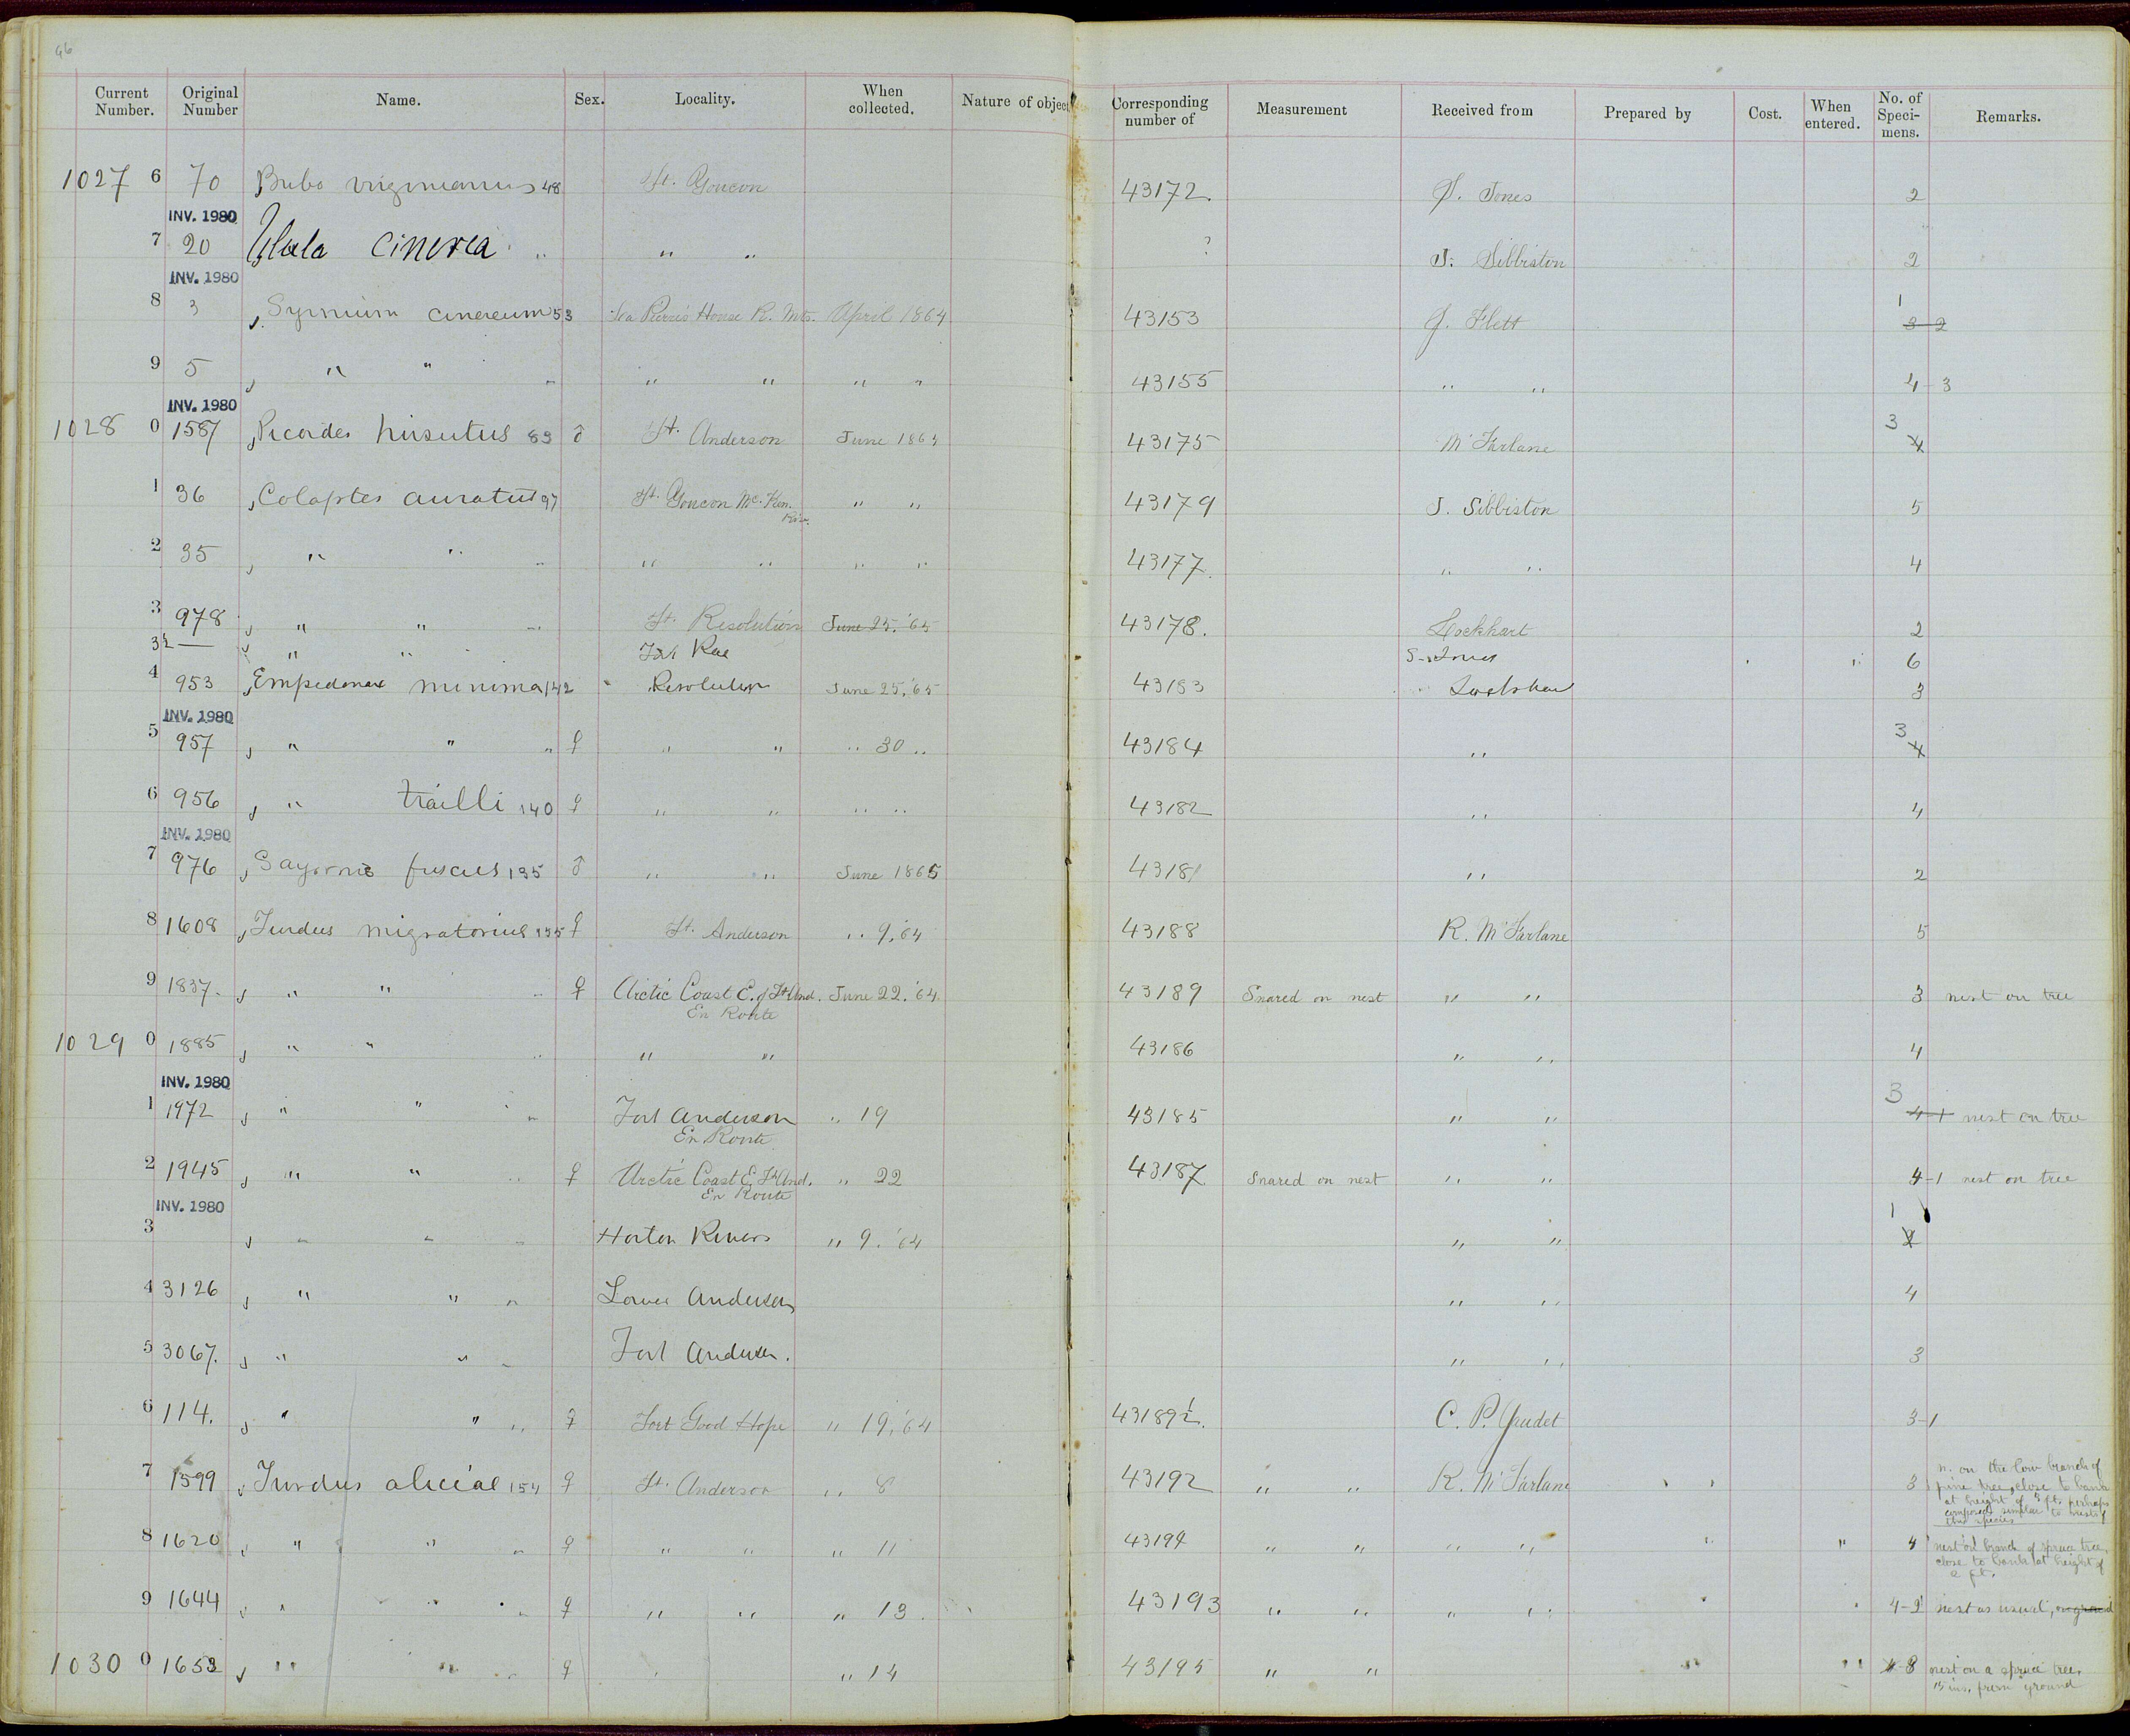 96
Current Number. Original Number Name. Sex. Locality. When collected. Nature of object Corresponding number of Measurement Received from Prepared by Cost. When entered. No. of Speci- mens. Remarks.
1027 6 70 Bubo virginianus 48 Ft. Youcon 43172. S. Jones 2
INV. 1980
7 20 Ulula cinerea " " " ? J. Sibbiston 2
INV. 1980
8 3 Syrnium cinereum 53 Pierre's House R. Mts. April 1864 43153 J. Flett 1 3-2
9 5 " " " " " " " 43155 " " 4-3
INV. 1980
1028 0 1587 Picoides hirsutus 83 ♂ Ft. Anderson June 1864 43175 McFarlane 3 4
1 36 Colaptes auratus 97 Ft. Youcon Mc. Ken. Riv. " " 43179 J. Sibbiston 5
2 35 " " " " " " " 43177. " " 4
3 978 " " " Ft. Resolution June 25. '65 43178. Lockhart 2
3½ — " " Fort Rae S. Jones " 6
4 953 Empedonax minima 142 " Resolution June 25. '65 43183 " Lockhart 3
INV. 1980
5 957 " " " ♀ " " " 30 " 43184 " 3 4
6 956 " trailli 140 ♀ " " " " 43182 " 4
INV. 1980
7 976 Sayornis fuscus 135 ♂ " " June 1865 43181 " 2
8 1608 Turdus migratorius 155 ♀ Ft. Anderson " 9, '64 43188 R. McFarlane 5
9 1837. " " " ♀ Arctic Coast E. of Ft And. June 22. '64. 43189 Snared on nest " " 3 nest on tree
En Route
1029 0 1885 " " " " " 43186 " " 4
INV. 1980
1 1972 " " " Fort Anderson " 19 43185 " " 3 4-1 nest on tree
En Route
2 1945 " " " ♀ Arctic Coast E. Ft And. " 22 43187. Snared on nest " " 4-1 nest on tree
En Route
INV. 1980
3 " " " Horton Rivers " 9. '64 " " 1 2
4 3126 " " " Lower Anderson " " 4
5 3067. " " " Fort Anderson. " " 3
6 114. " " " ♀ Fort Good Hope " 19, '64 43189½. C. P. Gaudet 3-1
7 1599 Turdus aliciae 154 ♀ Ft. Anderson " 8 43192 " " R. McFarlane 3 n. on the low branch of
pine tree, close to bank
at height of 5 ft. perhaps
composed similar to nests of
this species
8 1620 " " " ♀ " " " 11 43194 " " " " " " 4 nest on branch of spruce tree,
close to bank at height of
2 ft.
9 1644 " " " ♀ " " " 13. 43193 " " " " 4-2 nest as usual, on ground
1030 0 1653 " " " ♀ " 14 43195 " " " " 4-3 nest on a spruce tree,
15 ins. from ground